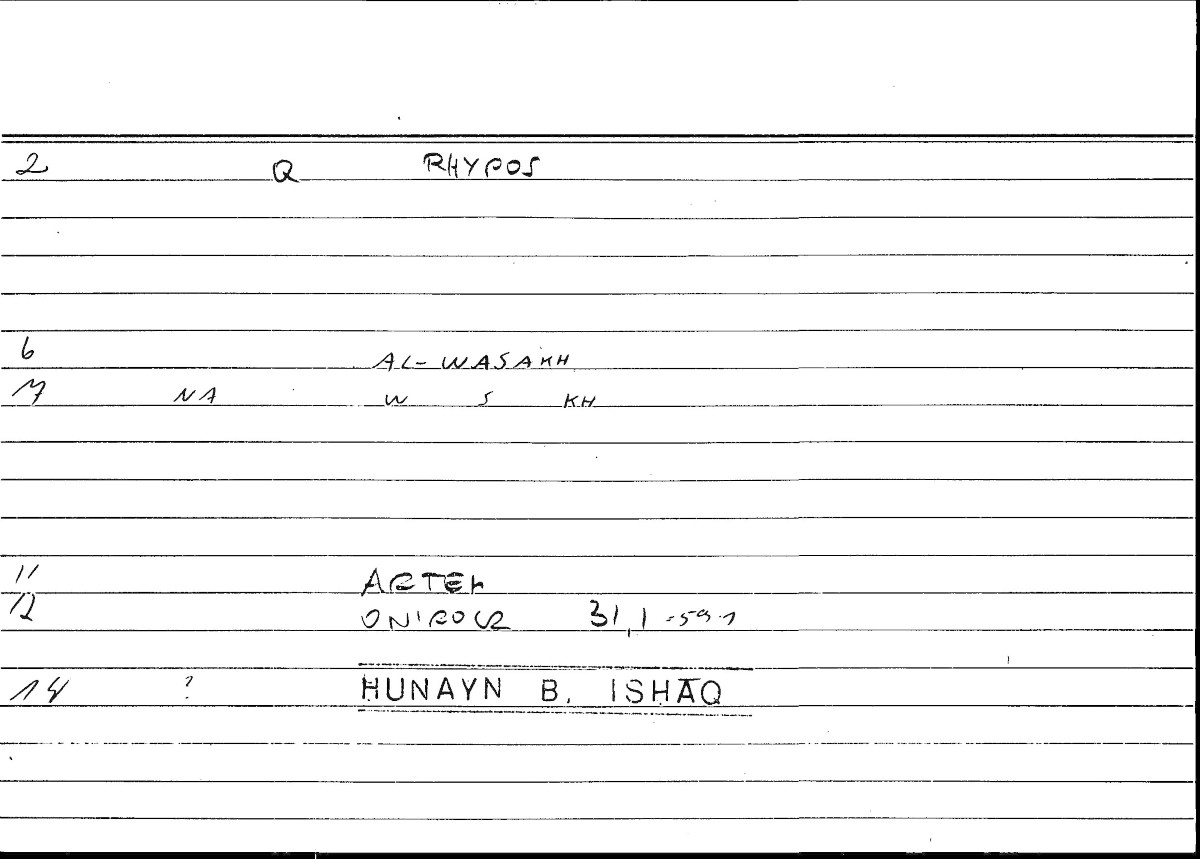 2 Q RHYPOS
6 AL-WASAKH
7 NA W S KH
11 ARTEM
12 ONIROCR 31,1
14 ? ḤUNAYN B. ISḤĀQ